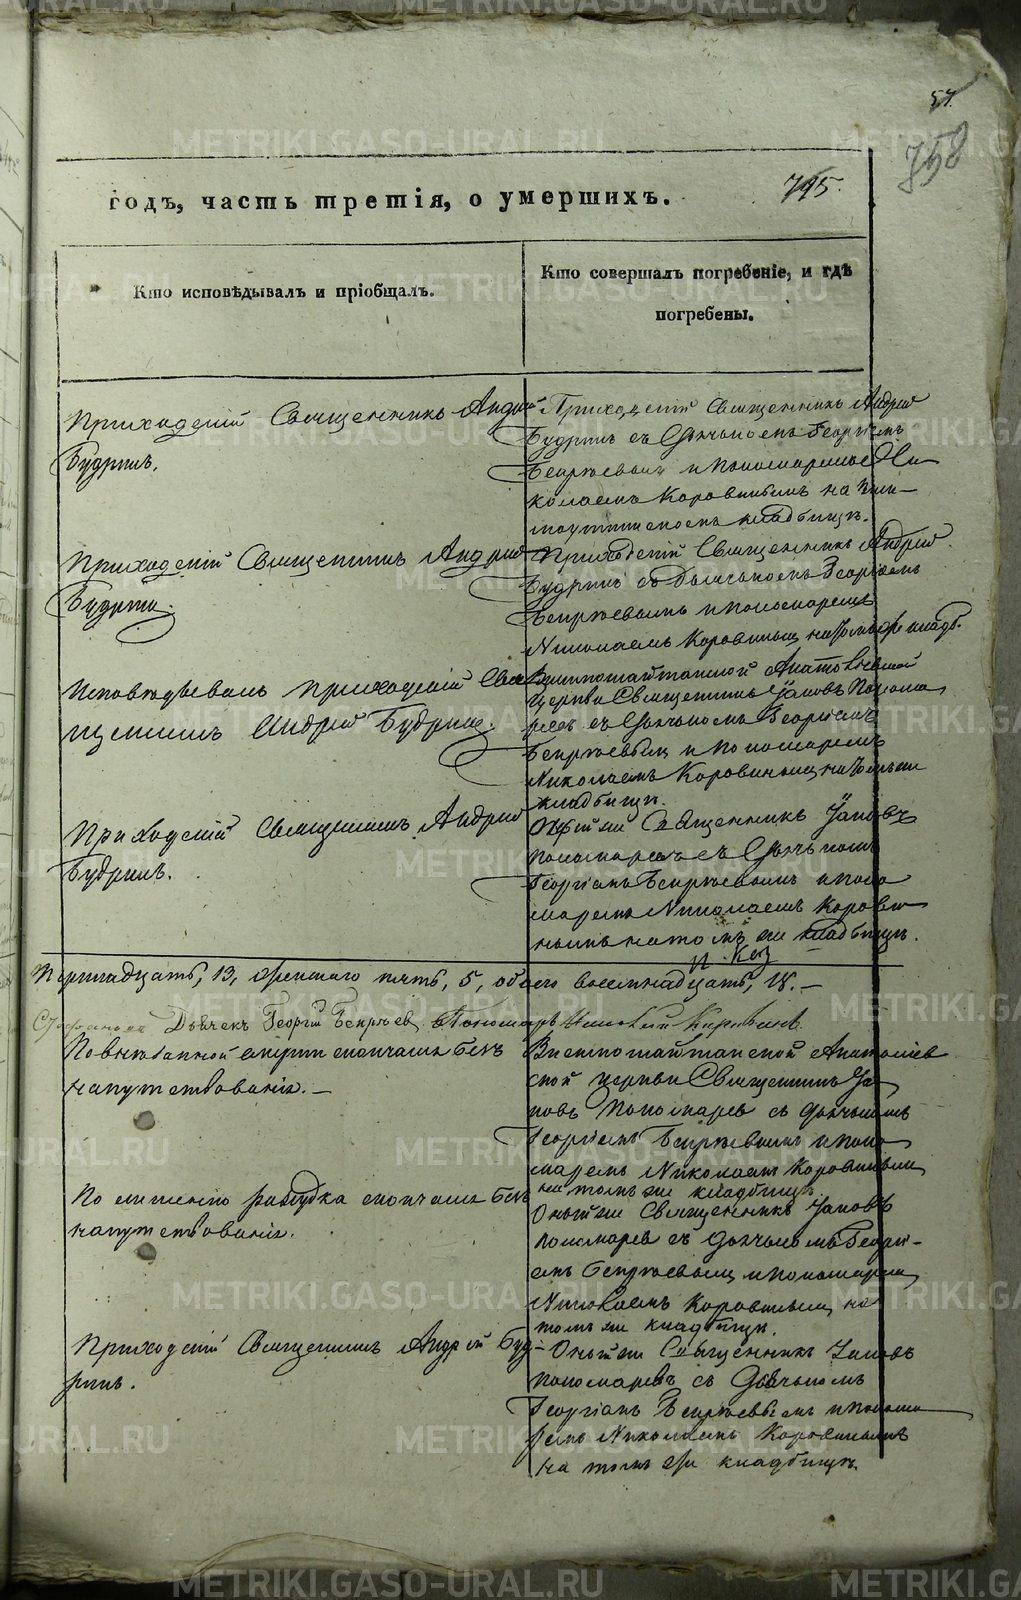 57.
758
795.
годъ, часть третія, о умершихъ.
Кто исповѣдывалъ и пріобщалъ.
Кто совершалъ погребеніе, и гдѣ
погребены.
Приходскій Священникъ Андрей
Будринъ.
Приходскій Священникъ Андрей
Будринъ съ Дьячкомъ Георгіемъ
и пономаремъ Ни
колаемъ Коровинымъ на
кладбищѣ.
Приходскій Священникъ Андрей
Будринъ.
Приходскій Священникъ Андрей
Будринъ съ Дьячкомъ Георгіемъ
и пономаремъ
Николаемъ Коровинымъ на томъ же кладб.
Исповѣдывалъ приходскій Свя
щенникъ Андрей Будринъ.
церкви Священникъ Іаковъ Понома
ревъ съ Дьячкомъ Георгіемъ
и пономаремъ
Николаемъ Коровинымъ на томъ же
кладбищѣ.
Приходскій Священникъ Андрей
Будринъ.
Онъ же Священникъ Іаковъ
Пономаревъ съ Дьячкомъ
Георгіемъ и поно
маремъ Николаемъ Корови
нымъ на томъ же кладбищѣ.
13, женскаго пять, 5, обоего восемнадцать, 18. —
Дьячекъ Георгій Пономарь Николай Коровинъ
По внезапной смерти скончался безъ
напутствованія. —
церкви Священникъ Іа
ковъ Пономаревъ съ дьячкомъ
Георгіемъ и поно
маремъ Николаемъ Коровинымъ
на томъ же кладбищѣ.
По лишенію разсудка скончался безъ
напутствованія.
Онъ же Священникъ Іаковъ
Пономаревъ съ дьячкомъ Георгі-
емъ и пономаремъ
Николаемъ Коровинымъ на
томъ же кладбищѣ.
Приходскій Священникъ Андрей Буд-
ринъ.
Онъ же Священникъ Іаковъ
Пономаревъ съ Дьячкомъ
Георгіемъ и понома
ремъ Николаемъ Коровинымъ
на томъ же кладбищѣ.
METRIKI.GASO-URAL.RU